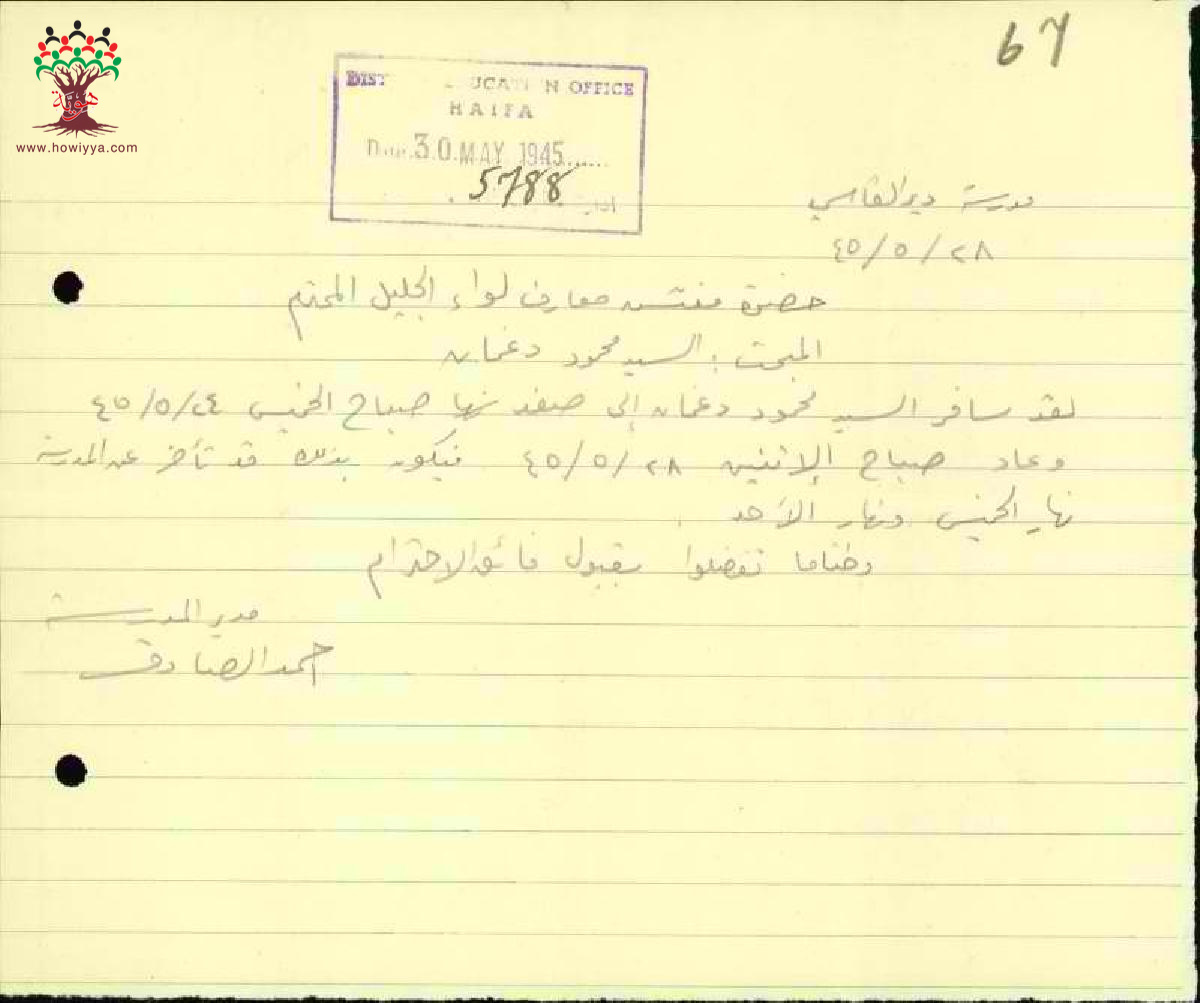 67
هوية
www.howiyya.com
DIST UCATI N OFFICE
HAIFA
Date 30 MAY 1945
5788
مدرسة ديرالقاسي
٤٥/٥/٢٨
حضرة مفتش معارف لواء الجليل المحترم
المبحث : السيد محمود دغمان
لقد سافر السيد محمود دغمان إلى صفد صباح الخميس ٤٥/٥/٢٤
وعاد صباح الإثنين ٤٥/٥/٢٨ فيكون بذلك قد تأخر عن المدرسة
نهار الخميس ونهار الأحد .
وختاما تفضلوا بقبول فائق الاحترام
مدير المدرسة
احمد الصادق